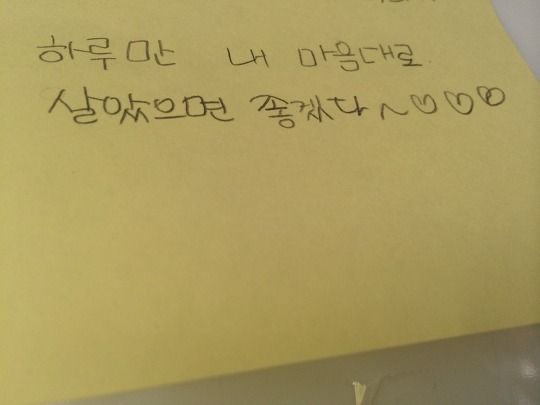 하루만 내 마음대로.
살았으면 좋겠다~♡♡♡